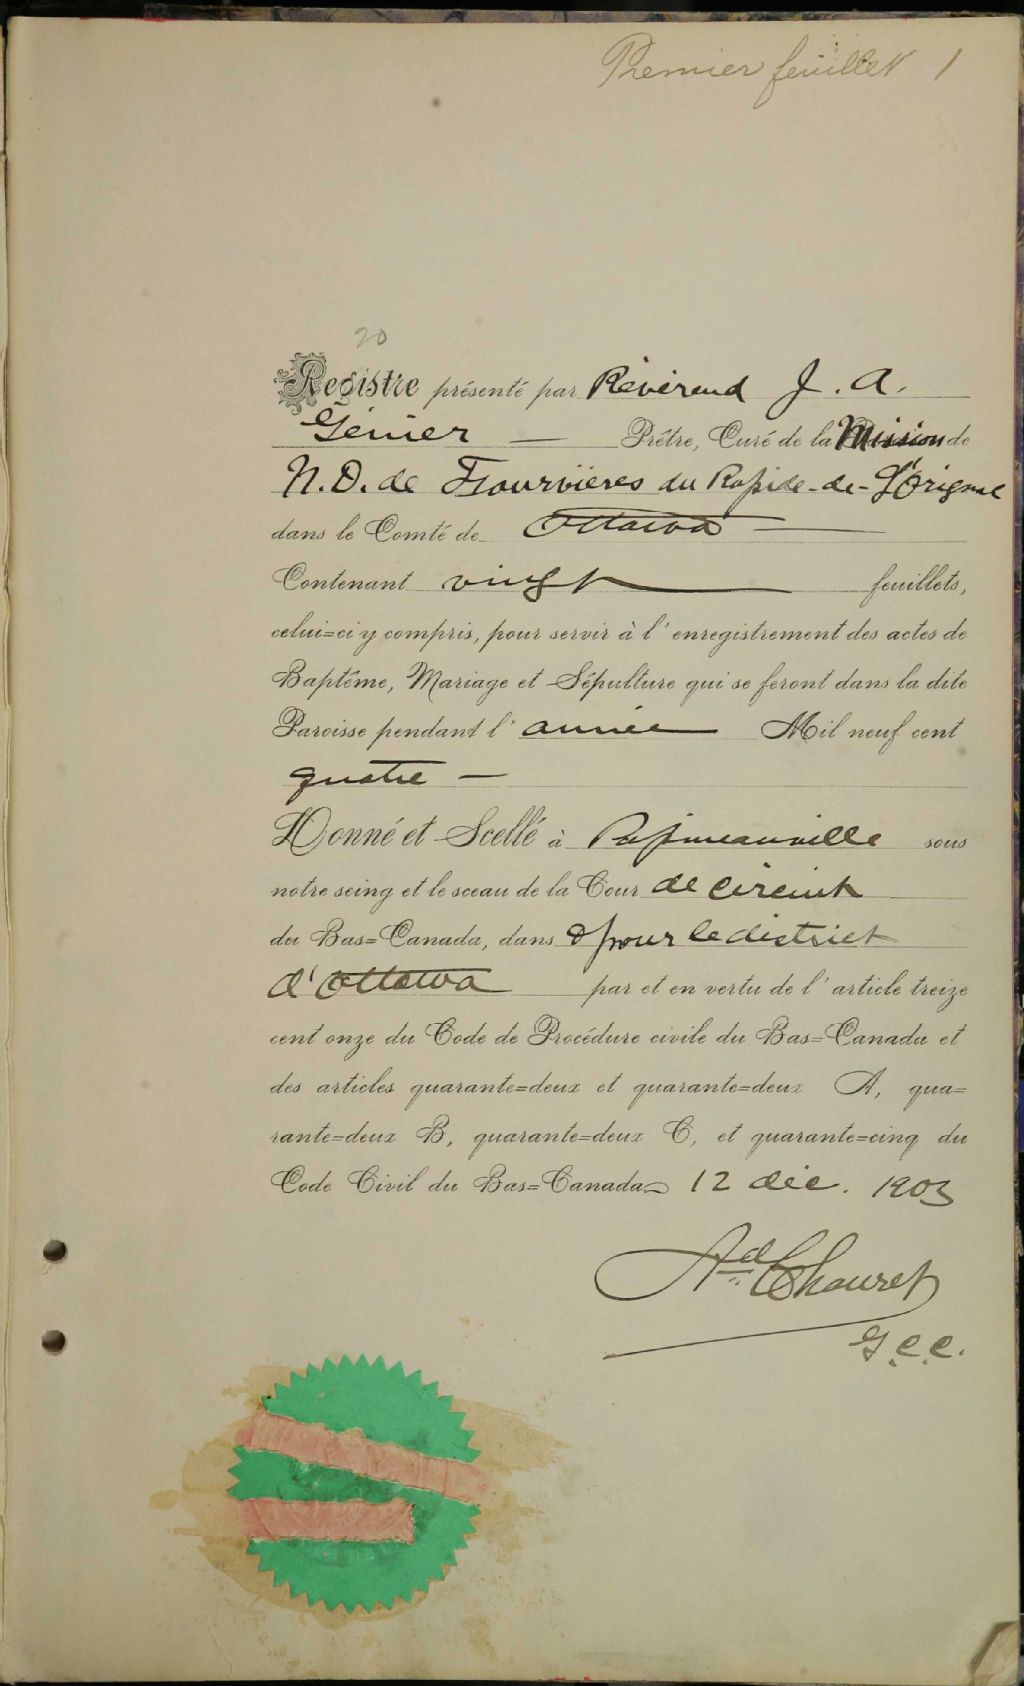 Premier feuillet 1
20
Registre présenté par Révérend J. A.
Génier — Prêtre, Curé de la Mission de
N.D. de Fourvières du Rapide-de-L'Orignal
dans le Comté de Ottawa —
Contenant vingt — feuillets,
celui=ci y compris, pour servir à l'enregistrement des actes de
Baptême, Mariage et Sépulture qui se feront dans la dite
Paroisse pendant l'année Mil neuf cent
quatre —
Donné et Scellé à Papineauville sous
notre seing et le sceau de la Cour de circuit
du Bas=Canada, dans & pour le district
d'Ottawa par et en vertu de l'article treize
cent onze du Code de Procédure civile du Bas=Canada et
des articles quarante=deux et quarante=deux A, qua=
rante=deux B, quarante=deux C, et quarante=cinq du
Code Civil du Bas=Canada 12 déc. 1903
Ad Chauret
G.C.C.